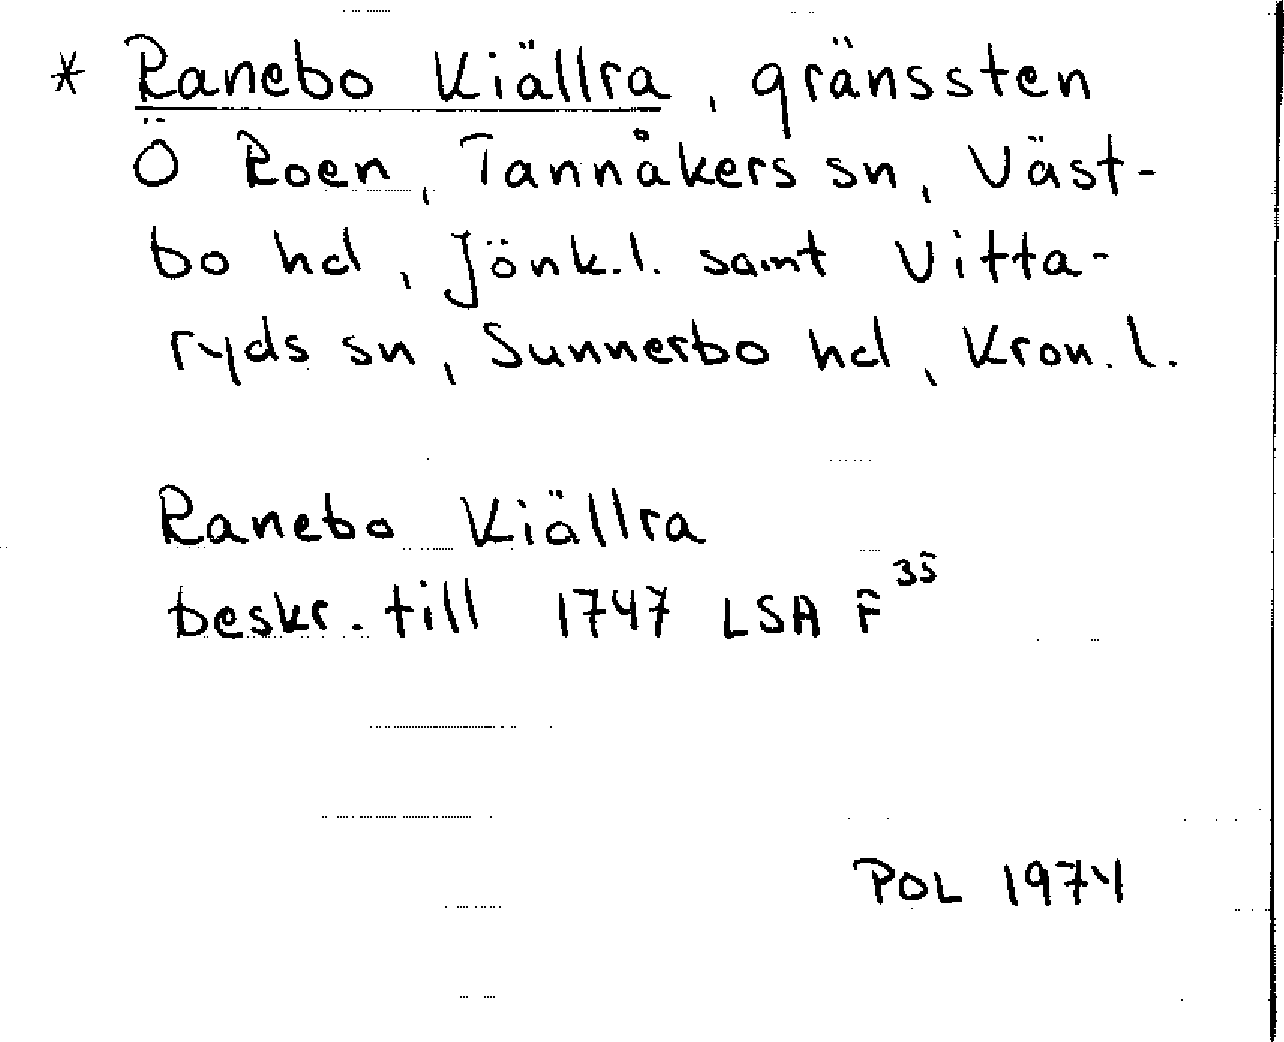 * Ranebo Kiällra, gränssten
Ö Roen, Tannåkers sn, Väst-
bo hd, Jönk.l. samt Vitta-
ryds sn, Sunnerbo hd, Kron.l.
Ranebo Kiällra
beskr. till 1747 LSA F 35
POL 1974